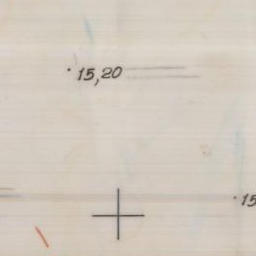 15,20
15